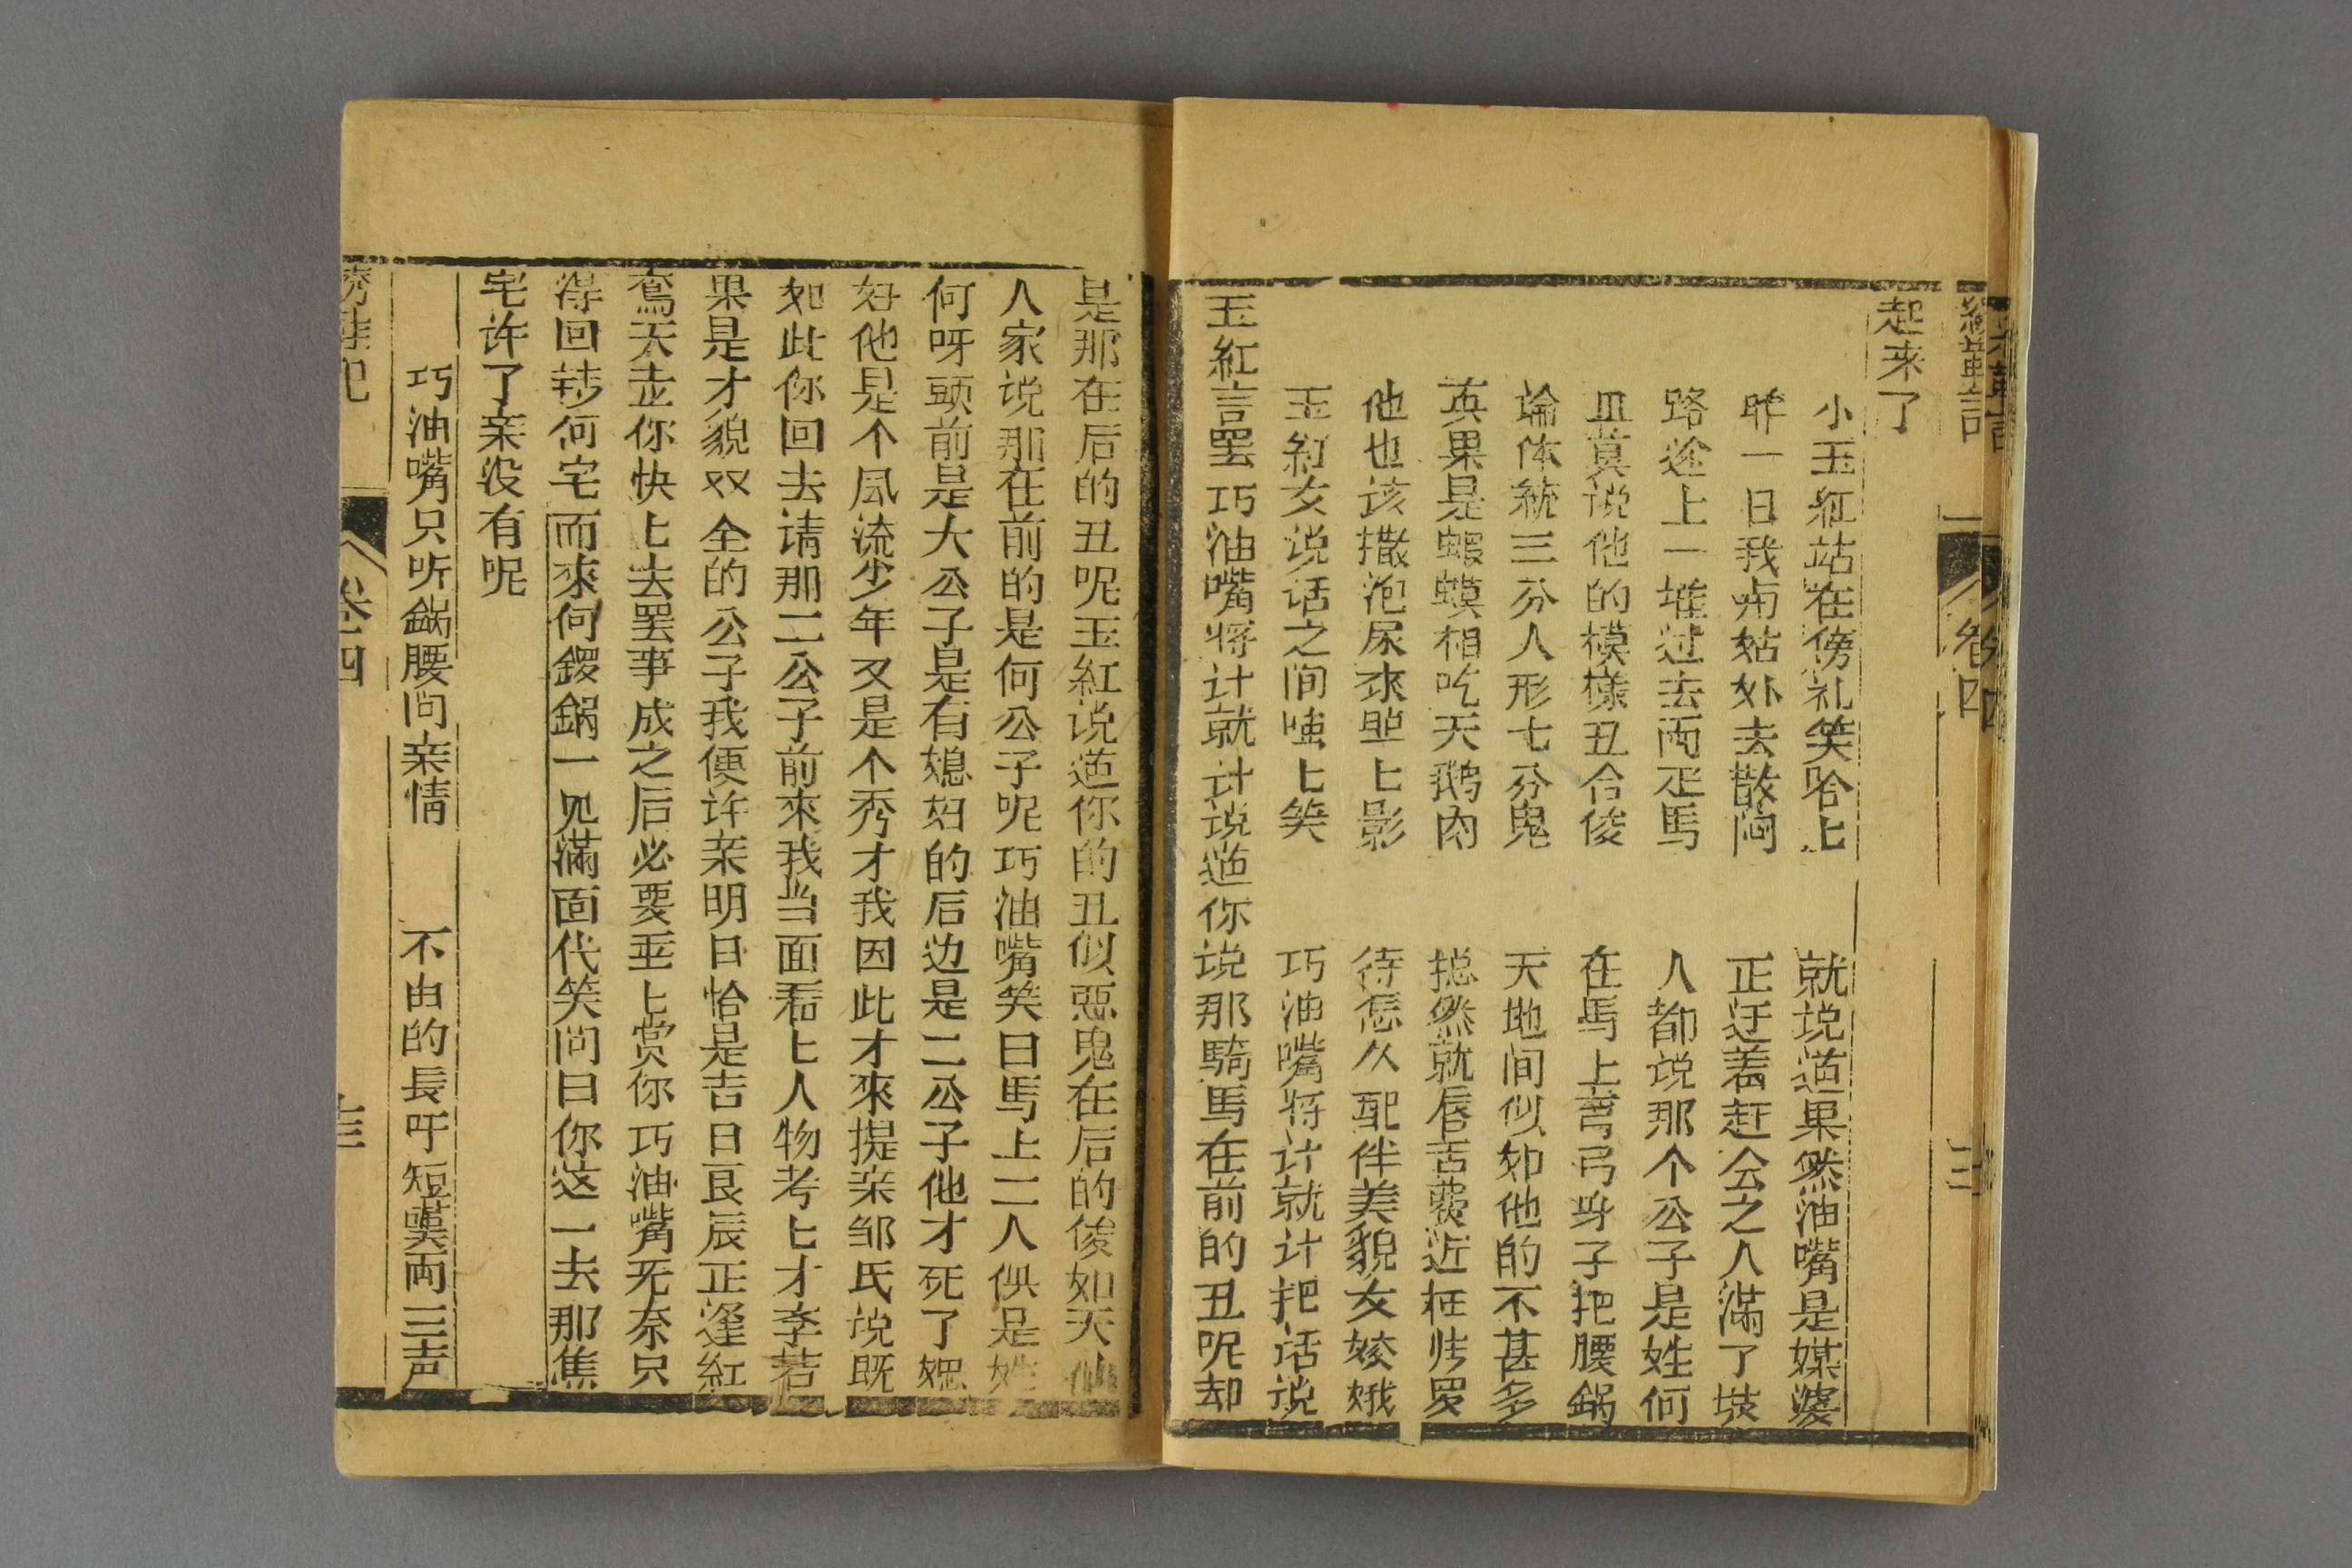 起来了
小玉紅站在傍礼笑哈上 就说道果然油嘴是媒婆
昨一日我南姑外去散闷 正迂着赶会之人滿了坡
路途上一堆过去两疋馬 人都说那个公子是姓何
且莫说他的模樣丑合俊 在馬上弯弓身子把腰鍋
论体统三分人形七分鬼 天地间似如他的不甚多
真果是蝦蟆相吃天鹅肉 揔然就唇舌费近枉劳罗
他也该撒泡尿來照上影 待怎么配伴美貌女姣娥
玉紅女说话之间嗤上笑 巧油嘴将计就计把话说
玉紅言罢巧油嘴将计就计说道你说那騎馬在前的丑呢却
是那在后的丑呢玉紅说道你的丑似惡鬼在后的俊如天仙
人家说那在前的是何公子呢巧油嘴笑曰馬上二人俱是姓
何呀頭前是大公子是有媳妇的后边是二公子他才死了媳
好他是个凬流少年又是个秀才我因此才來提亲邹氏说既
如此你回去请那二公子前來我当面看上人物考上才李若
果是才貌双全的公子我便许亲明日恰是吉日良辰正逢紅
鸾天走你快上去罢事成之后必要重上赏你巧油嘴无奈只
得回转何宅而來何鑼鍋一见滿面代笑问曰你这一去那焦
宅许了亲没有呢
巧油嘴只听鍋腰问亲情 不由的長吁短嘆两三声
卷四
卷四
三